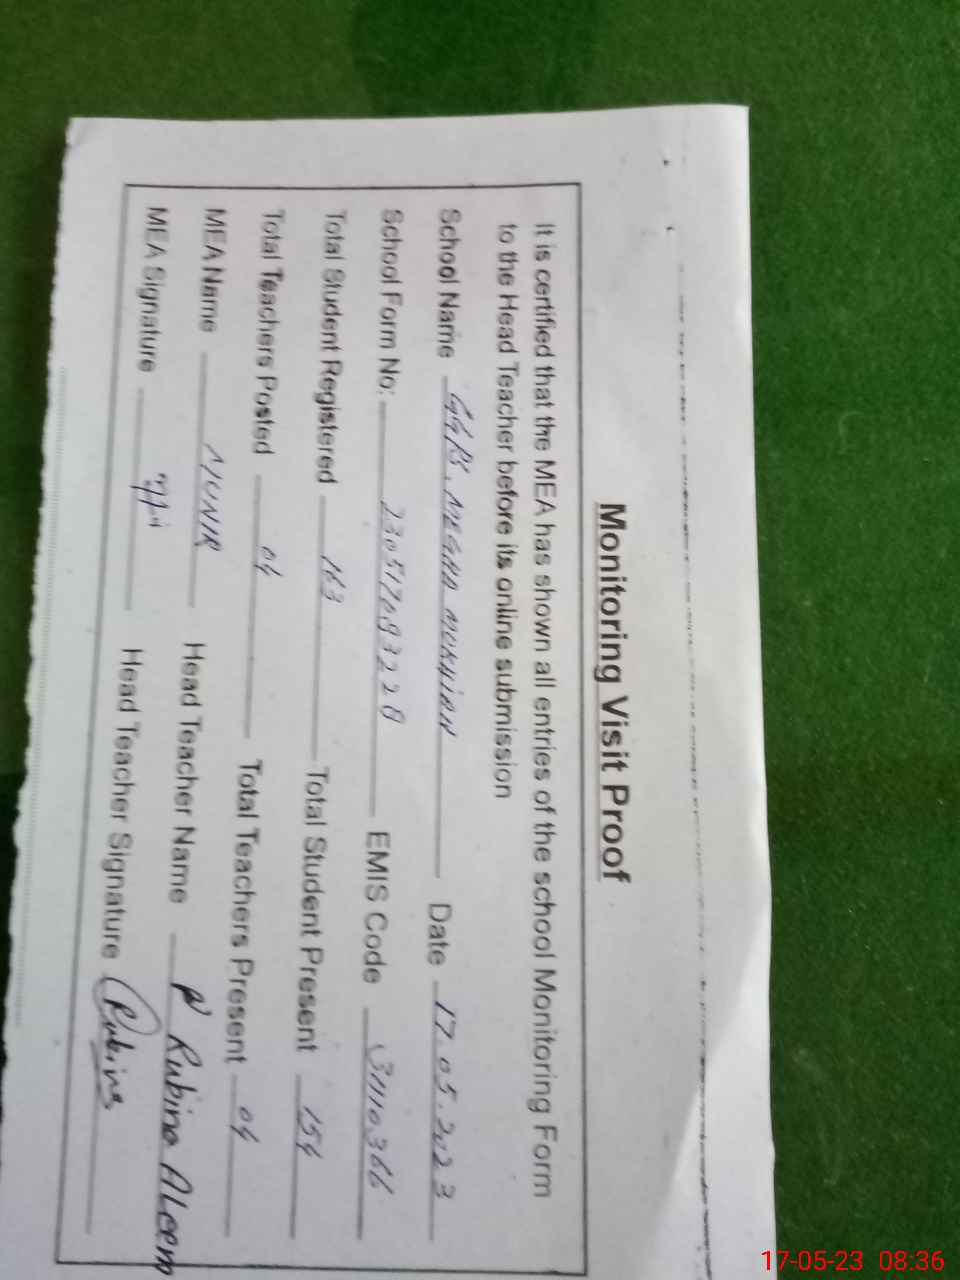 Monitoring Visit Proof
It is certified that the MEA has shown all entries of the school Monitoring Form
to the Head Teacher before its online submission
School Name GGPS. MEGHA MOKHIAN Date 17.05.2023
School Form No: 23051709328 EMIS Code 31110366
Total Student Registered 163 Total Student Present 154
Total Teachers Posted 04 Total Teachers Present 04
MEA Name MUNIR Head Teacher Name Rubina Aleem
MEA Signature Head Teacher Signature Rubina
17-05-23 08:36